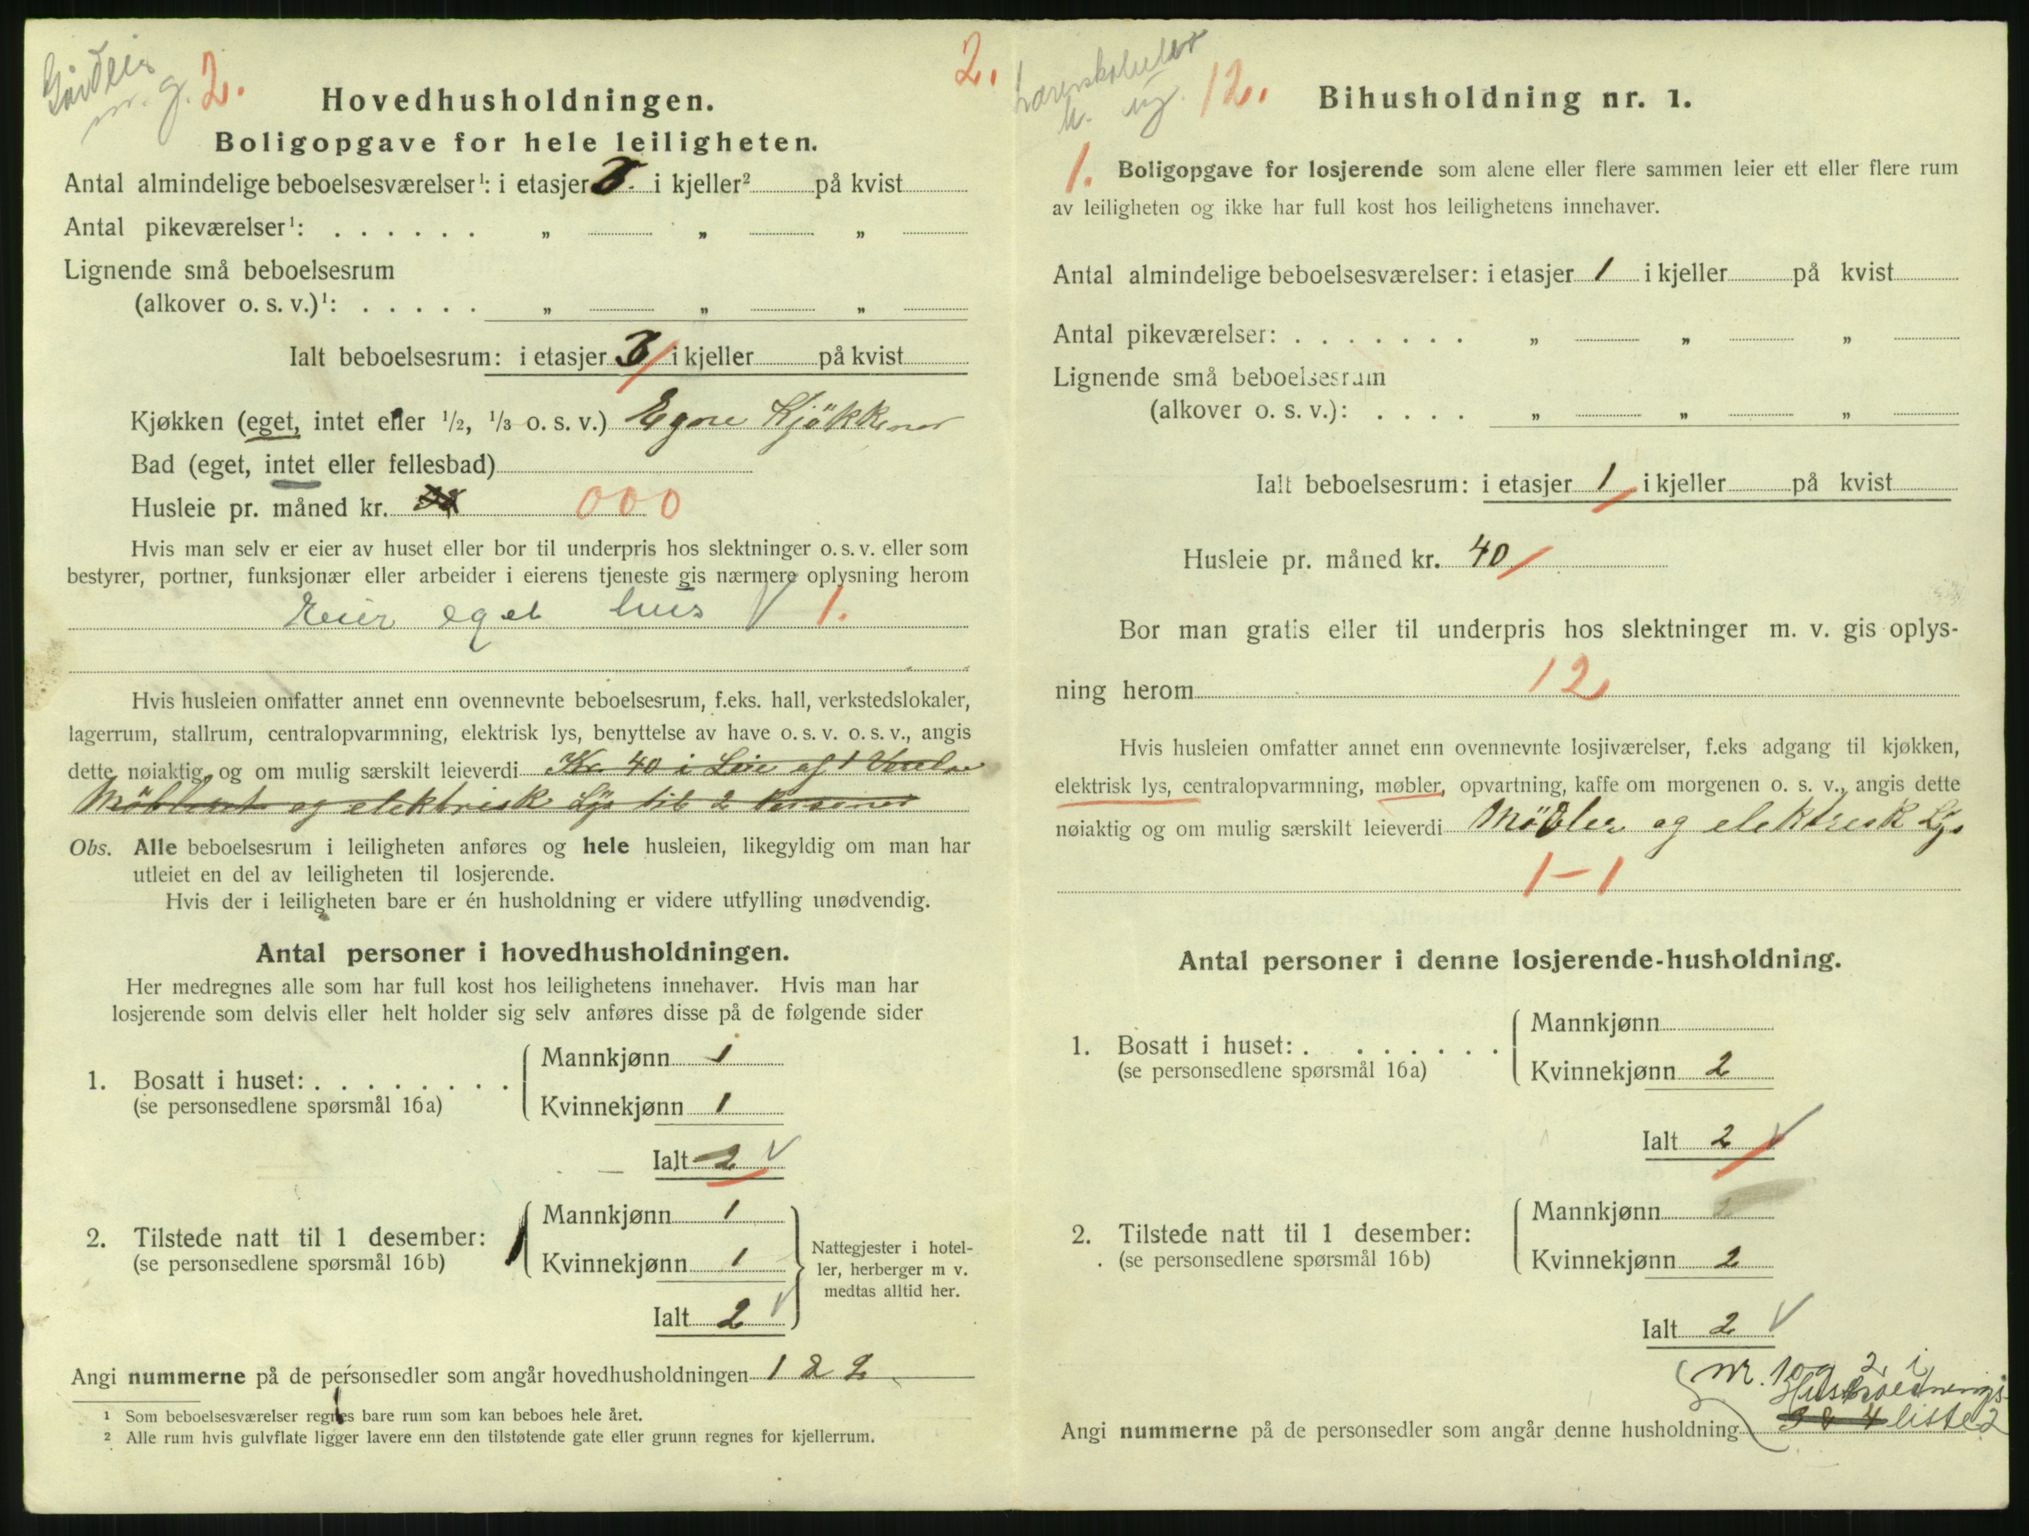 Gårdeier
m. g. 2.
2.
Hovedhusholdningen.
Boligopgave for hele leiligheten.
Antal almindelige beboelsesværelser¹: i etasjer 3 i kjeller² på kvist
Antal pikeværelser¹: . . . . . . „ „ „
Lignende små beboelsesrum
(alkover o. s. v.)¹: . . . . . „ „ „
Ialt beboelsesrum: i etasjer 3 i kjeller på kvist
Kjøkken (eget, intet eller 1/2, 1/3 o. s. v.) Egne Kjökkener
Bad (eget, intet eller fellesbad)
Husleie pr. måned kr. 000
Hvis man selv er eier av huset eller bor til underpris hos slektninger o. s. v. eller som
bestyrer, portner, funksjonær eller arbeider i eierens tjeneste gis nærmere oplysning herom
Eier eget hus V 1.
Hvis husleien omfatter annet enn ovennevnte beboelsesrum, f.eks. hall, verkstedslokaler,
lagerrum, stallrum, centralopvarmning, elektrisk lys, benyttelse av have o. s. v. o. s. v., angis
dette nøiaktig og om mulig særskilt leieverdi Kr 40 i Leie af 1 Værelse
Möbleret og elektrisk Lÿs til 2 Personer
Obs. Alle beboelsesrum i leiligheten anføres og hele husleien, likegyldig om man har
utleiet en del av leiligheten til losjerende.
Hvis der i leiligheten bare er én husholdning er videre utfylling unødvendig.
Antal personer i hovedhusholdningen.
Her medregnes alle som har full kost hos leilighetens innehaver. Hvis man har
losjerende som delvis eller helt holder sig selv anføres disse på de følgende sider
1. Bosatt i huset: . . . . . . . .
(se personsedlene spørsmål 16a)
Mannkjønn 1
Kvinnekjønn 1
Ialt 2 V
2. Tilstede natt til 1 desember:
(se personsedlene spørsmål 16b)
Mannkjønn 1
Kvinnekjønn 1
Ialt 2 V
Nattegjester i hotel-
ler, herberger m v.
medtas alltid her.
Angi nummerne på de personsedler som angår hovedhusholdningen 1 & 2
¹ Som beboelsesværelser regnes bare rum som kan beboes hele året.
² Alle rum hvis gulvflate ligger lavere enn den tilstøtende gate eller grunn regnes for kjellerrum.
k. ug. 12.
Bihusholdning nr. 1.
1. Boligopgave for losjerende som alene eller flere sammen leier ett eller flere rum
av leiligheten og ikke har full kost hos leilighetens innehaver.
Antal almindelige beboelsesværelser: i etasjer 1 i kjeller på kvist
Antal pikeværelser: . . . . . . . „ „ „
Lignende små beboelsesrum
(alkover o. s. v.): . . . . „ „ „
Ialt beboelsesrum: i etasjer 1 i kjeller på kvist
Husleie pr. måned kr. 40
Bor man gratis eller til underpris hos slektninger m. v. gis oplys-
ning herom 12
Hvis husleien omfatter annet enn ovennevnte losjiværelser, f.eks adgang til kjøkken,
elektrisk lys, centralopvarmning, møbler, opvartning, kaffe om morgenen o. s. v., angis dette
nøiaktig og om mulig særskilt leieverdi Möbler og elektrisk Lÿs
1-1
Antal personer i denne losjerende-husholdning.
1. Bosatt i huset: . . . . . . .
(se personsedlene spørsmål 16a)
Mannkjønn
Kvinnekjønn 2
Ialt 2 V
2. Tilstede natt til 1 desember:
(se personsedlene spørsmål 16b)
Mannkjønn 2
Kvinnekjønn 2
Ialt 2 V
nr. 1 og 2 i
Husholdnings-
3 & 4 liste 2
Angi nummerne på de personsedler som angår denne husholdning